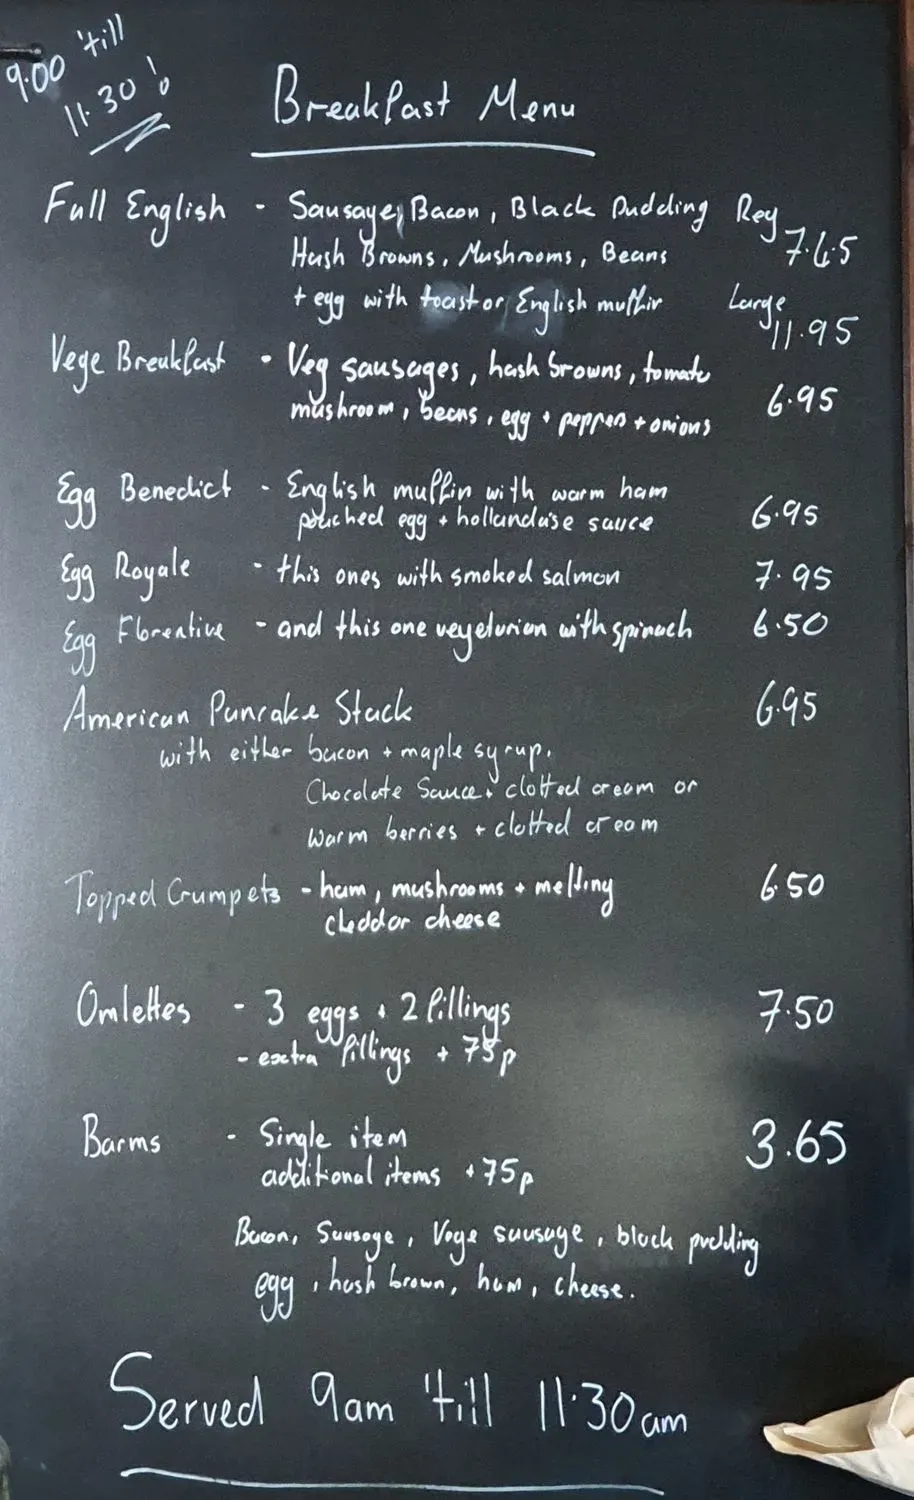 9.00 'till
11.30!
Breakfast Menu
Full English - Sausage, Bacon, Black Pudding Reg
7.45
Hash Browns, Mushrooms, Beans
+ egg with toast or English muffin Large
11.95
Vege Breakfast - Veg sausages, hash browns, tomato
mushroom, beans, egg + peppers + onions 6.95
Egg Benedict - English muffin with warm ham
poached egg + hollandaise sauce 6.95
Egg Royale - this ones with smoked salmon 7.95
Egg Florentine - and this one vegetarian with spinach 6.50
American Pancake Stack 6.95
with either bacon + maple syrup.
Chocolate Sauce + clotted cream or
warm berries + clotted cream
Topped Crumpets - ham, mushrooms + melting 6.50
cheddar cheese
Omlettes - 3 eggs + 2 fillings 7.50
- extra fillings + 75p
Barms - Single item 3.65
additional items +75p
Bacon, Sausage, Vege sausage, black pudding
egg, hash brown, ham, cheese.
Served 9am 'till 11.30am